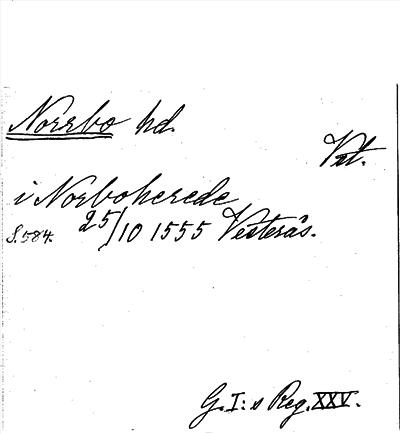 Norrbo hd.
Vst.
i Norboherede
S. 584. 25/10 1555 Vesterås.
G. I:s Reg. XXV.